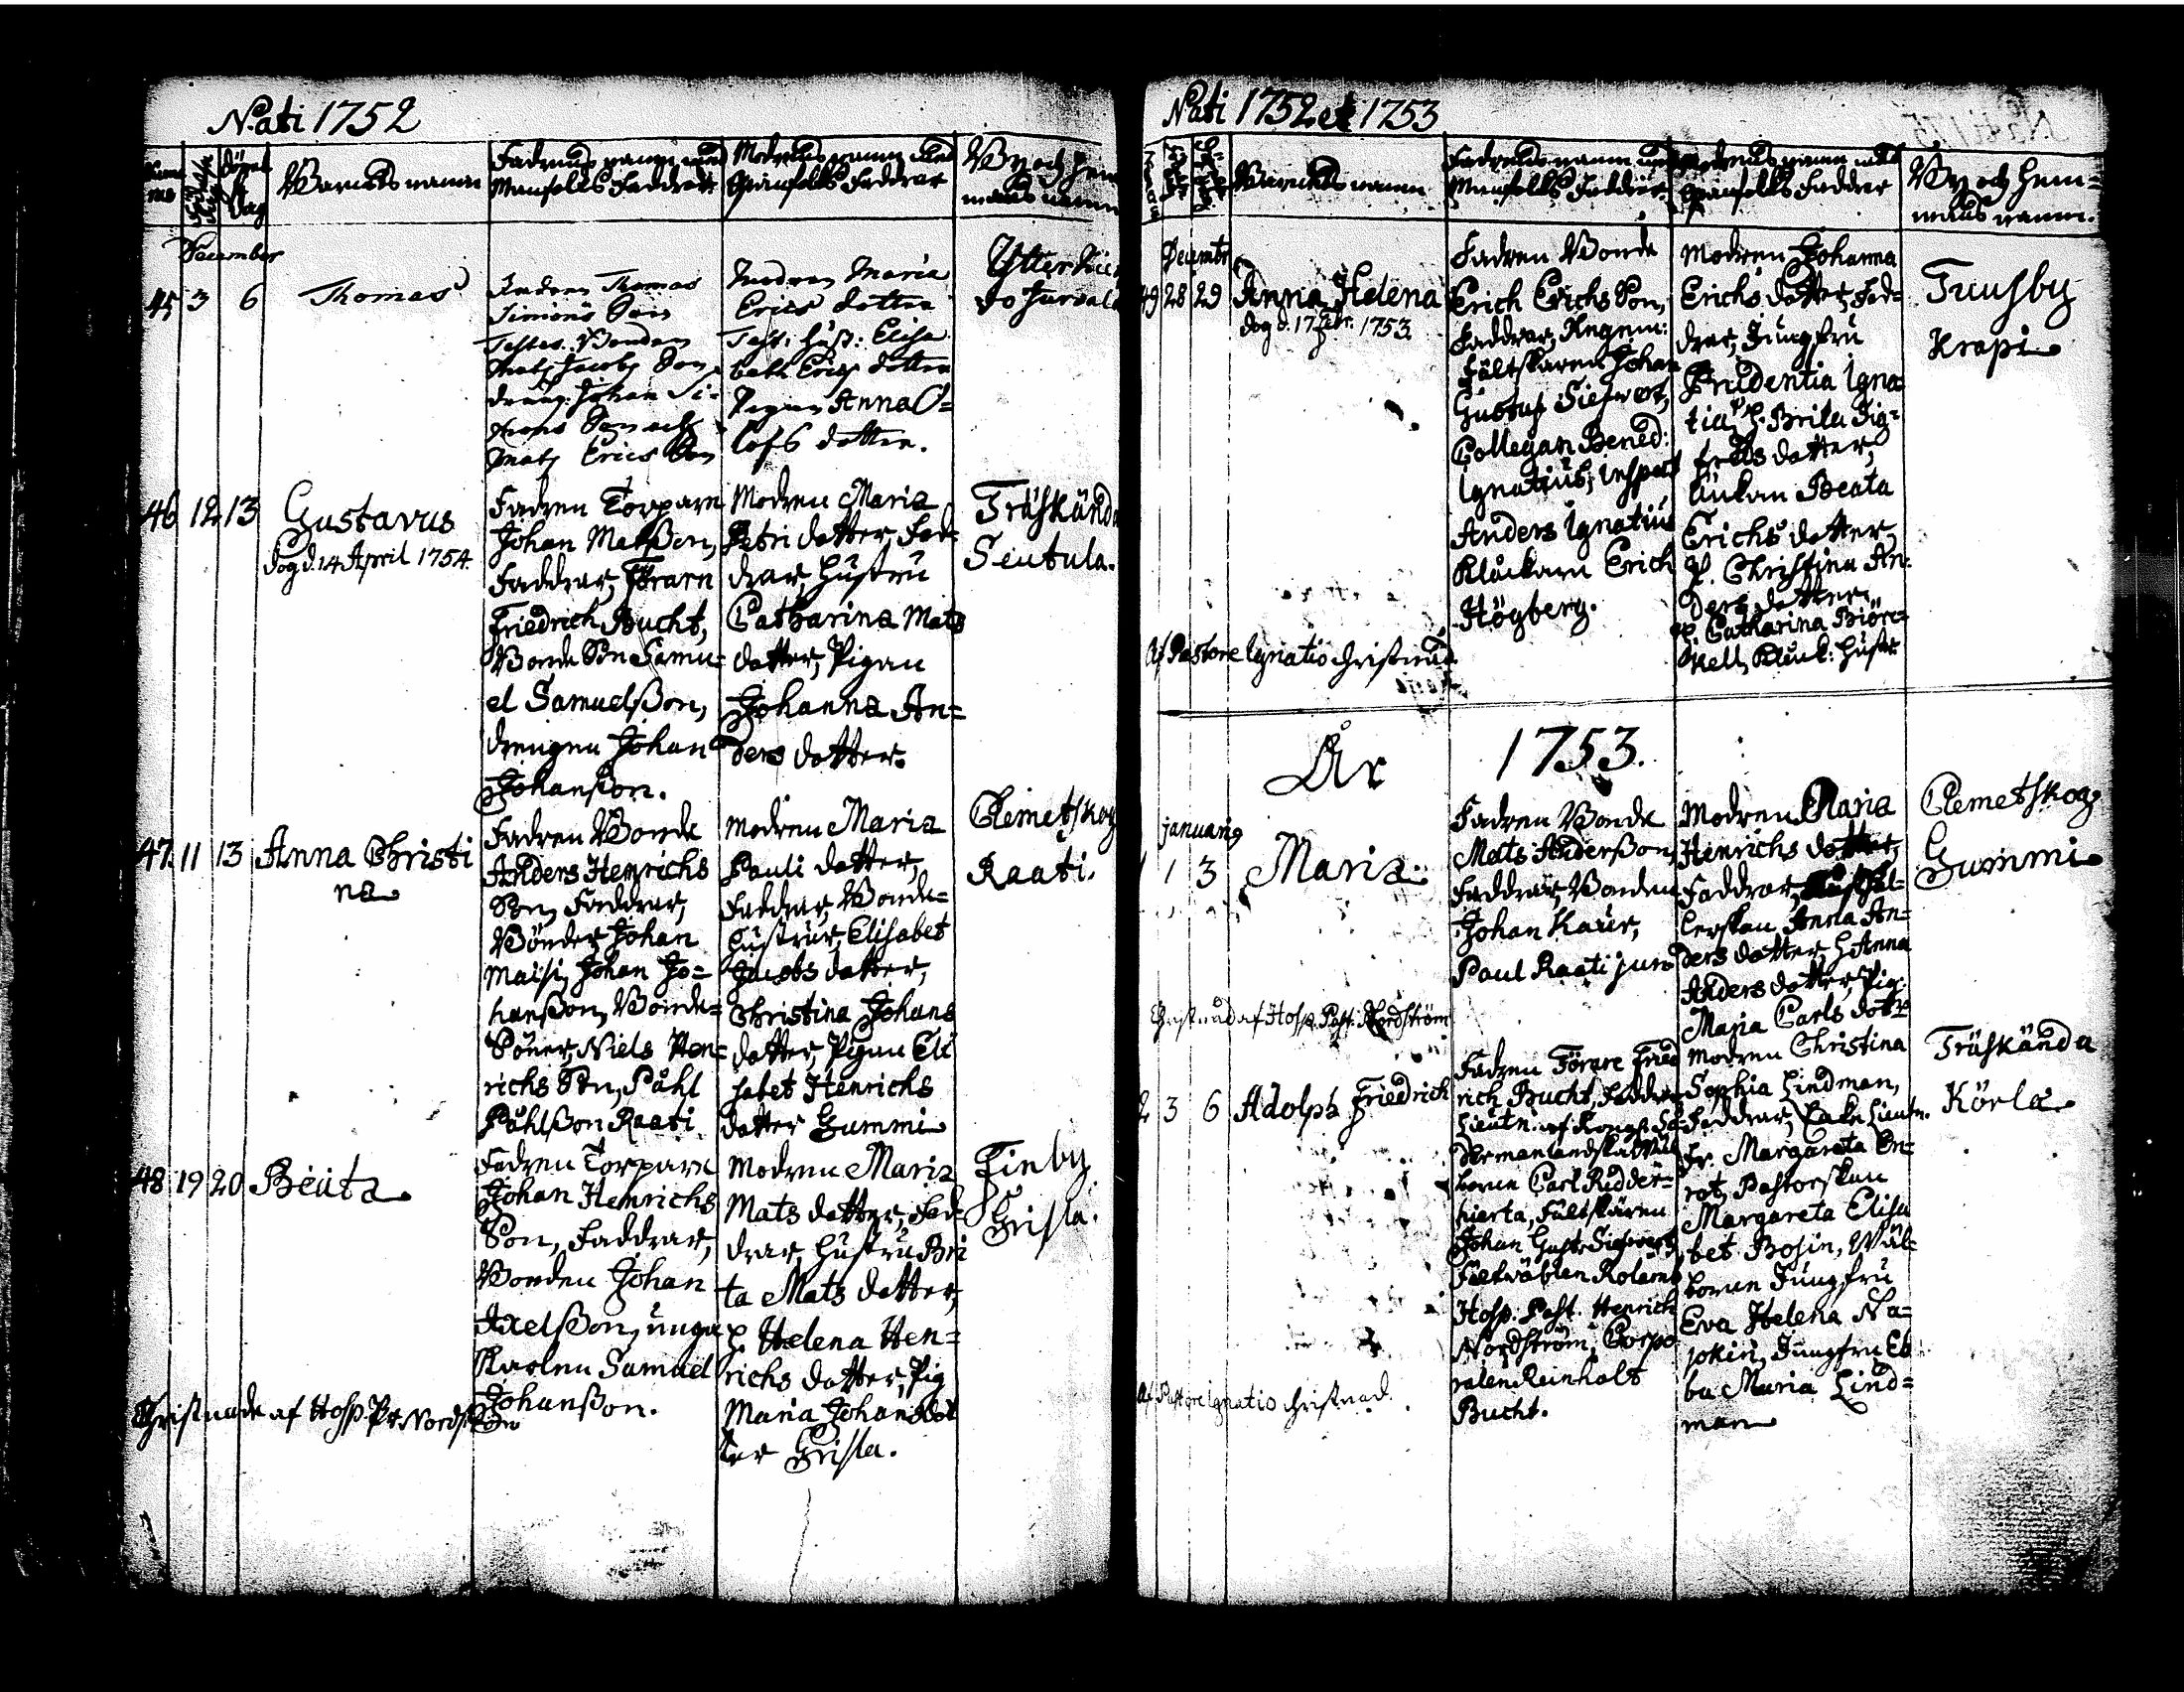 Nati 1752
Barnets namn
Fadrens namn med
Manfolks Faddrar
Modrens namn med
Qvinfolks Faddrar
By och hem
mans namn
December
45 3 6 Thomas
Fadren Thomas
Simons Son
Testes. Bonden
Mats Jacobs Son
dräng. Johan Si-
mons Son och
Mats Erics Son
Modren Maria
Erics dotter
Test: Hust: Elisa
beth Erics dotter
Pigan Anna O=
lofs dotter.
46 12 13 Gustavus
dog d. 14 April 1754.
Fadren Torparn
Johan Matsson,
Faddrar, Förarn
Friedrich Bucht,
Bonde Son Samu=
el Samuelsson,
drengen Johan
Johansson.
Modren Maria
Petri dotter, Fad=
drar, Hustru
Catharina Mats
dotter, Pigan
Johanna An=
ders dotter.
Träskända
Seutula.
47. 11 13 Anna Christi
na
Fadren Bonde
Anders Henrichs
Son, Faddrar,
Bönder Johan
Maisi, Johan Jo=
hansson, Bonde=
Söner, Niels Hen=
richs Son, Påhl
Påhlsson Raati
Modren Maria
Pauli dotter,
Faddrar, Bonde=
Hustrur, Elisabet
Jacobs dotter,
Christina Johans
dotter, Pigan Eli
sabet Henrichs
dotter Gummi
Clemetskog
Raati.
48 19 20 Beata
Fadren Torparn
Johan Henrichs
Son, Faddrar,
Bonden Johan
Axelsson, unga
Karlen Samuel
Johansson.
Modren Maria
Mats dotter, Fad=
drar, Hustru Bri
ta Mats dotter,
H. Helena Hen=
richs dotter, Pig
Maria Johans dot
ter Grisla.
Finby
Grisla.
Christnade af Hosp. Pr. Nordström
Nati 1752 et 1753
Barnets namn
Fadrens namn med
Manfolks Faddrar
Modrens namn med
Qvinfolks Faddrar
By och Hem=
mans namn.
Decembr
49 28 29 Anna Helena
dog d. 17 Febr. 1753
Fadren Bonde
Erich Erichs Son,
Faddrar, Regem:
Fältskären Johan
Gustaf Siefwert,
Collegan Bened:
Ignatius, Inspect
Anders Ignatius
Klåckarn Erich
Högberg.
Modren Johanna
Erichs dotter, Fad=
drar, Jungfru
Prudentia Igna
tia, H. Brita Sig=
freds dotter,
Änkan Beata
Erichs dotter,
P. Christina An=
ders dotter,
H. Catharina Biörc=
kell, Kluck: Hustr
Tuusby
Krapi
Af Pastore Ignatio Christnad
År 1753.
januarij
1 1 3 Maria
Fadren Bonde
Mats Andersson,
Faddrar, Bonden
Johan Kaur,
Paul Raati jun
Modren Maria
Henrichs dotter,
Faddrar,
lerskan Anna An=
ders dotter, H Anna
Anders dotter, Pig.
Maja Carls dott
Clemetskog
Gummi
Christnad af Hosp. Past. Nordström
2 3 6 Adolph Friedrich
Fadren Förare Fried
rich Bucht, Faddrar
Lieutn. af Kongl. Sö
dermanlandska Wäl
borne Carl Ridder=
hierta, Fältskären
Johan Gust: Siefwert
Fältwäblen Rolamb
Hosp: Past. Henrich
Nordström, Corpo
ralen Reinholt
Bucht.
Modren Christina
Sophia Lindman,
Faddrar, Lieutn.
Fr. Margareta En=
rot, Pastorskan
Margareta Elisa
bet Bosin, Wäl=
borne Jungfru
Eva Helena Na=
jokin, Jungfru Eb
ba Maria Lind=
man
Träskända
Körla.
Af Pastore Ignatio Christnad.